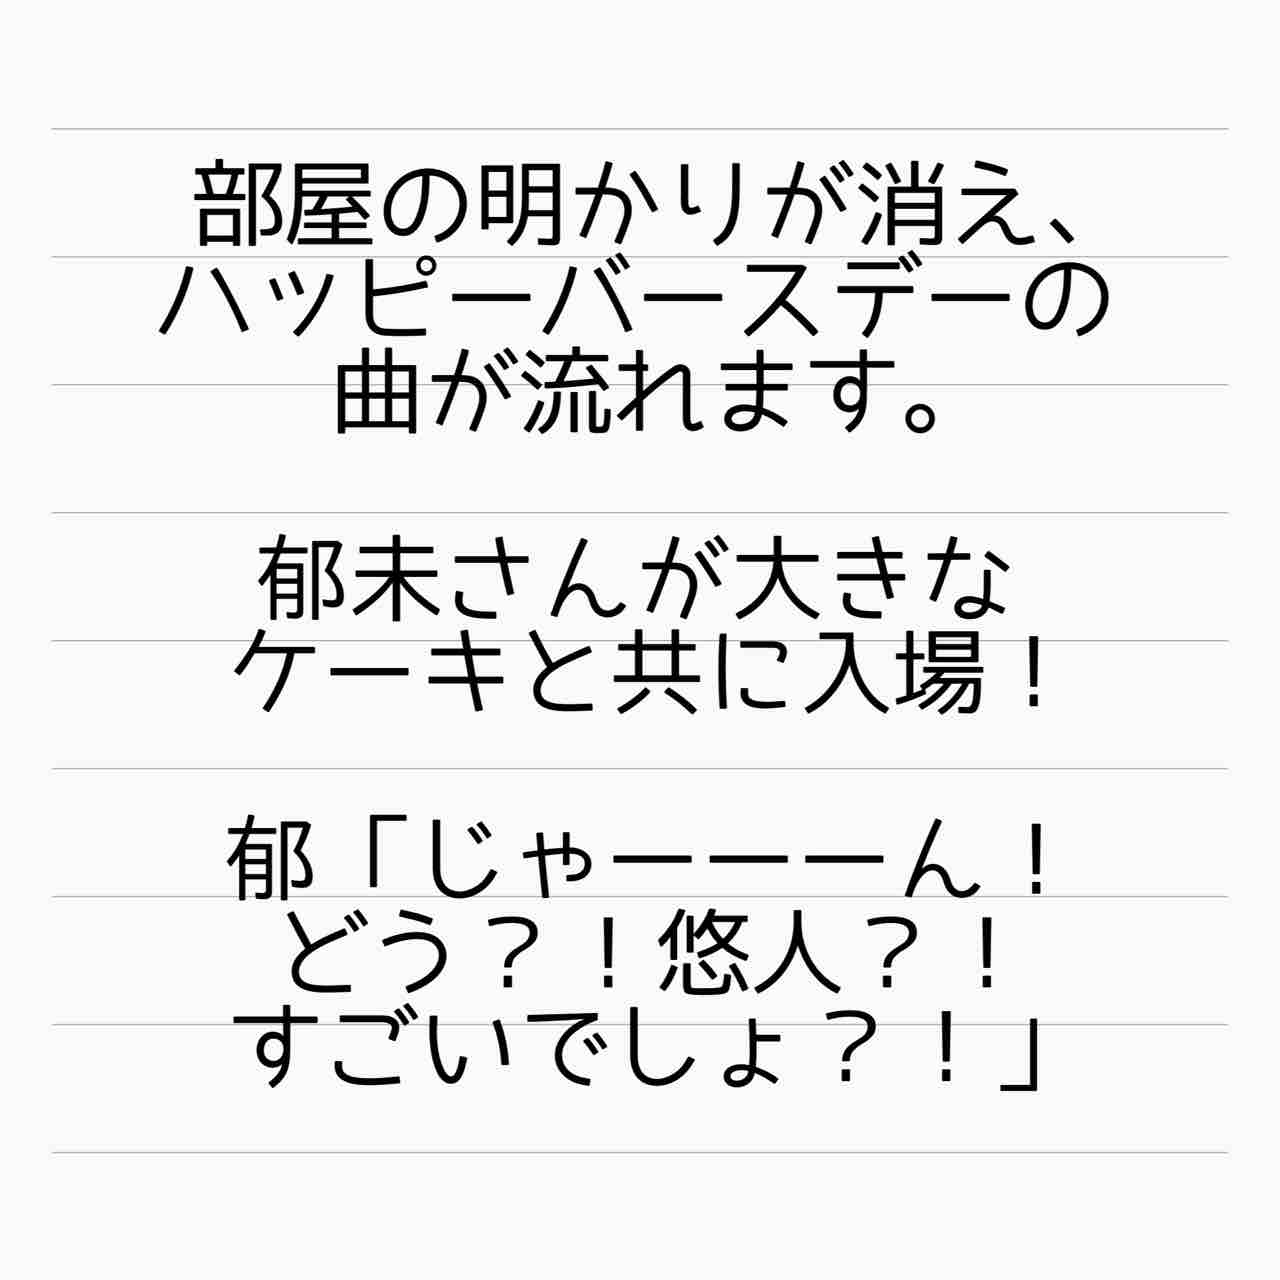 部屋の明かりが消え、
ハッピーバースデーの
曲が流れます。
郁未さんが大きな
ケーキと共に入場！
郁「じゃーーーん！
どう？！悠人？！
すごいでしょ？！」